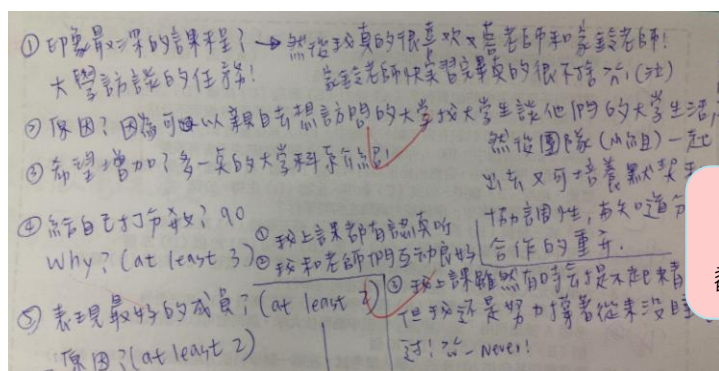 ①印象最深的課程?→然後我真的很喜歡文喜老師和家鈴老師!
大學訪談的任務! 家鈴老師快實習完畢真的很不捨
②原因?因為可以親自去想訪問的大学找大學生談他們的大學生活,
然後團隊(小組)一起
出去又可培養默契
③希望增加?多一點的大学科系介紹!
協調性,而知道分
合作的重要.
④給自己打分數? 90
Why? (at least 3)
①我上課都有認真听
②我和老師們互動良好
③我上課雖然有時會提不起來
但我还是努力撐著從來沒睡
過! Never!
⑤表現最好的成員? (at least 2)
原因? (at least 2)